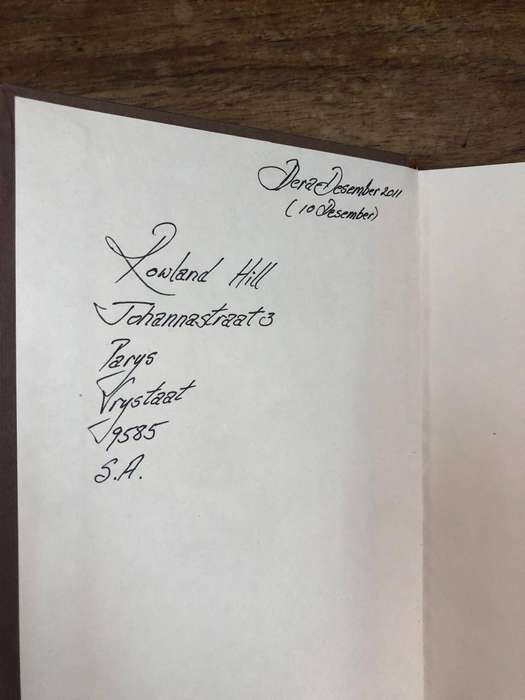 Desember 2011
(10 Desember)
Rowland Hill
Johannastraat 3
Parys
Vrystaat
9585
S.A.